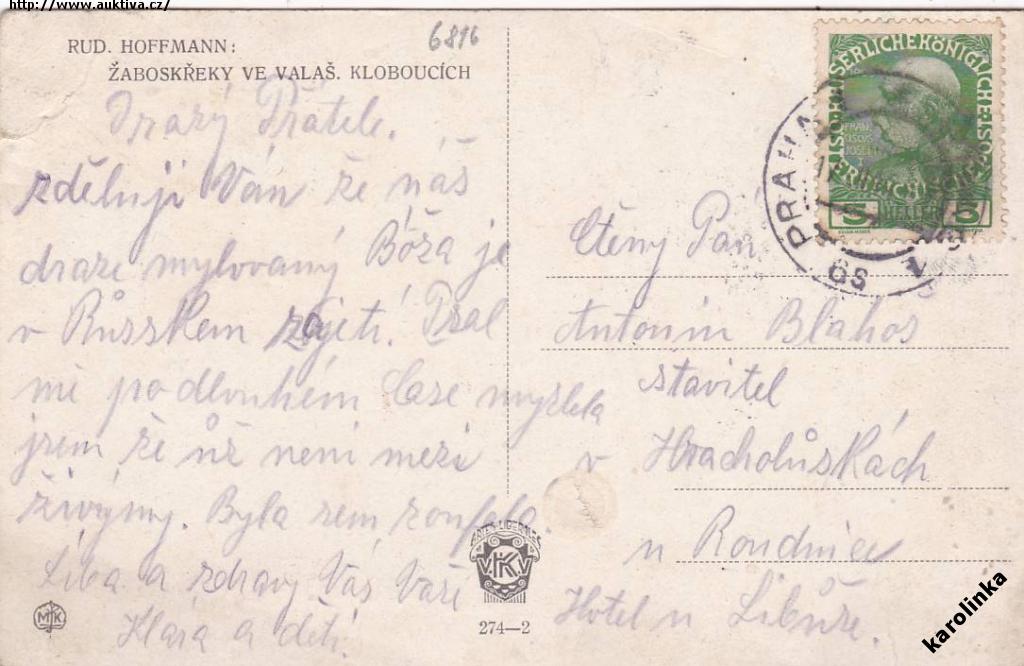 http://www.auktiva.cz/
6816
RUD. HOFFMANN:
ŽABOSKŘEKY VE VALAŠ. KLOBOUCÍCH
Drazý Přátele.
zděluji Ván že náš
draze mylovaný Bóža je
v Růsskem zajetí. Psal
mě po dlouhém čase myslela
jsem že ůž neni mezi
živýmy. Byla sem zoufala.
Líba a zdravy Vás Vaší
Klára a děti.
MK
V.KK.V
274—2
KAISERLICHE KÖNIGLICHE ÖSTERR
5 HELLER 5
PRAHA
Ctěny Pan
Antonin Blahoš
stavitel
v Hracholůskách
u Roudnice
Hotel u Libůše.
karolinka